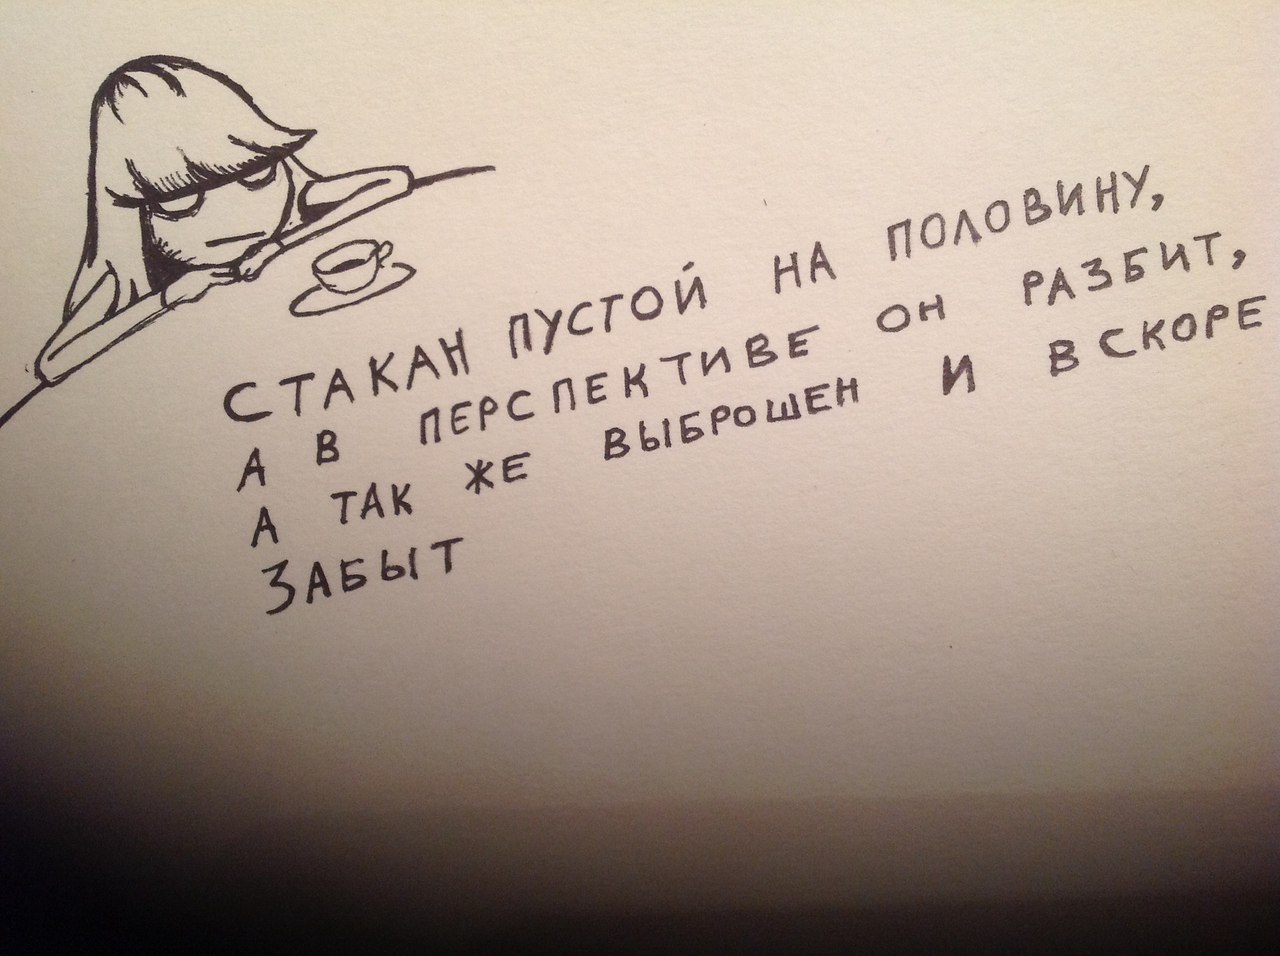 СТАКАН ПУСТОЙ НА ПОЛОВИНУ,
А В ПЕРСПЕКТИВЕ ОН РАЗБИТ,
А ТАК ЖЕ ВЫБРОШЕН И ВСКОРЕ
ЗАБЫТ